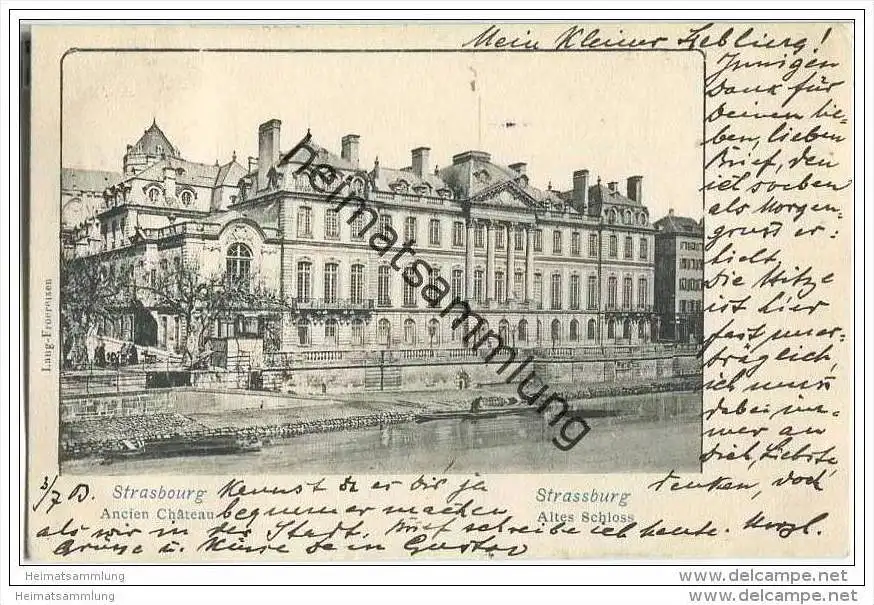 Mein Kleiner Liebling!
Innigen
Dank für
Deinen lie-
ben, lieben
Brief, den
ich soeben
als Morgen-
gruss er-
hielt.
Die Hitze
ist hier
fast uner-
träglich,
ich muss
dabei im-
mer an
Dich, Liebste,
denken, doch
Lang-Froereisen
3/7 03.
Strasbourg
Ancien Château
Strassburg
Altes Schloss
kannst Du es Dir ja
bequemer machen
als wir in der Stadt. Brief schreibe ich heute. Herzl.
Grüsse u. Küsse Dein Gustav
heimatsammlung
Heimatsammlung
Heimatsammlung
www.delcampe.net
www.delcampe.com